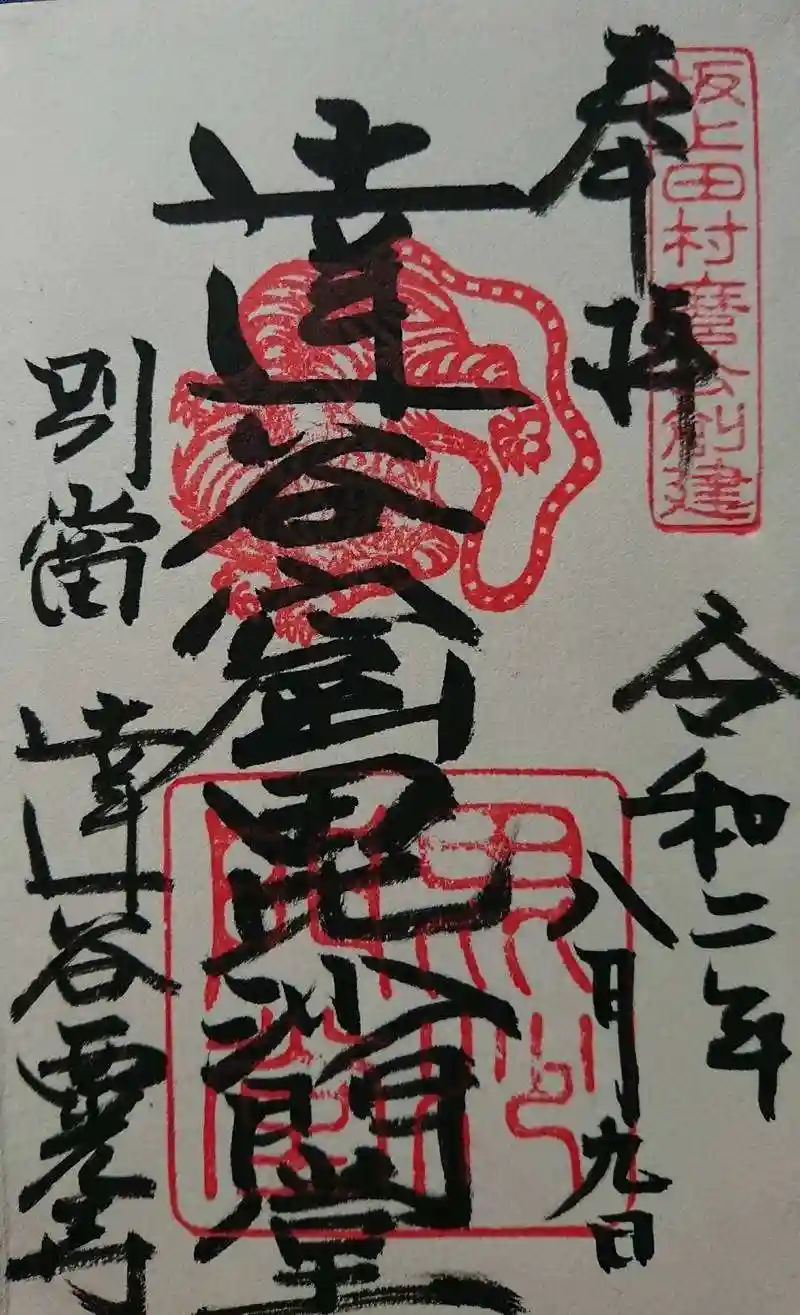 坂上田村麿公創建
奉拝
令和二年
八月九日
達谷窟毘沙門堂
別當
達谷西光寺